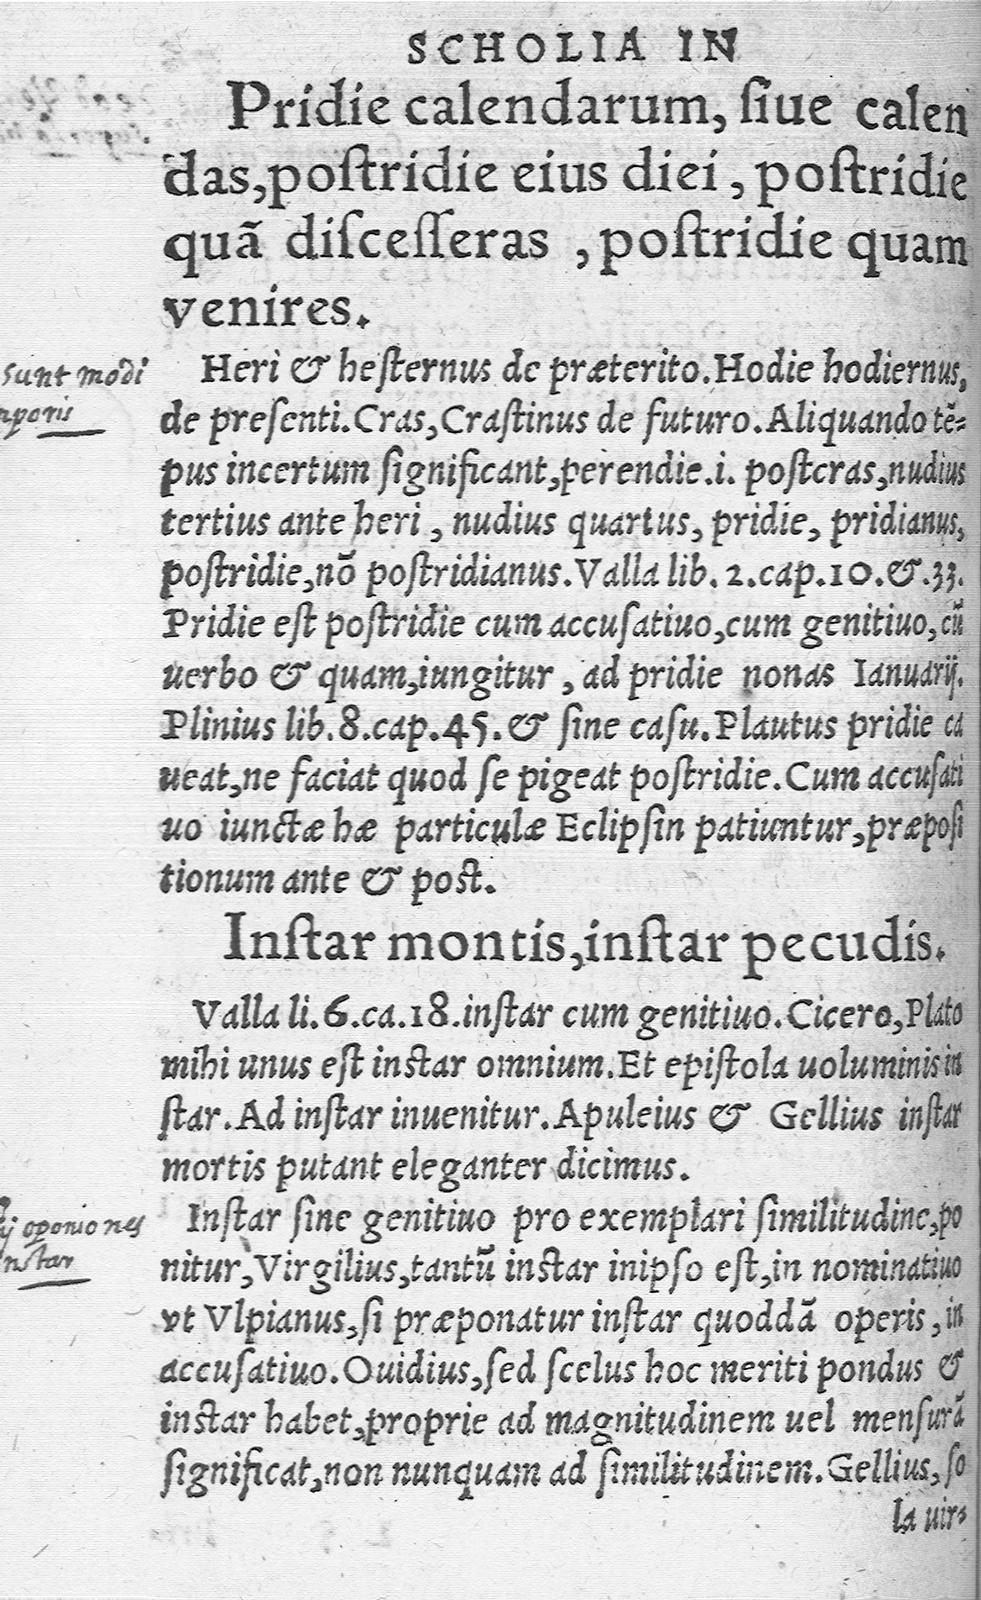 SCHOLIA IN
Pridie calendarum, ſiue calen
das, poſtridie eius diei, poſtridie
quã diſceſſeras, poſtridie quam
venires.
Heri & heſternus de præterito. Hodie hodiernus,
de preſenti. Cras, Craſtinus de futuro. Aliquando tē=
pus incertum ſignificant, perendie .i. poſtcras, nudius
tertius ante heri, nudius quartus, pridie, pridianus,
poſtridie, nō poſtridianus. Valla lib. 2. cap. 10. &. 33.
Pridie eſt poſtridie cum accuſatiuo, cum genitiuo, cū
uerbo & quam, iungitur, ad pridie nonas Ianuarij.
Plinius lib. 8. cap. 45. & ſine caſu. Plautus pridie ca
ueat, ne faciat quod ſe pigeat poſtridie. Cum accuſati
uo iunctæ hæ particulæ Eclipſin patiuntur, præpoſi
tionum ante & poſt.
Inſtar montis, inſtar pecudis.
Valla li. 6. ca. 18. inſtar cum genitiuo. Cicero, Plato
mihi unus eſt inſtar omnium. Et epiſtola uoluminis in
ſtar. Ad inſtar inuenitur. Apuleius & Gellius inſtar
mortis putant eleganter dicimus.
Inſtar ſine genitiuo pro exemplari ſimilitudine, po
nitur, Virgilius, tantū inſtar in ipſo eſt, in nominatiuo
vt Vlpianus, ſi præponatur inſtar quoddã operis, in
accuſatiuo. Ouidius, ſed ſcelus hoc meriti pondus &
inſtar habet, proprie ad magnitudinem uel menſurã
ſignificat, non nunquam ad ſimilitudinem. Gellius, ſo
la uir=
sunt modi
nporis
ij oponiones
nstar